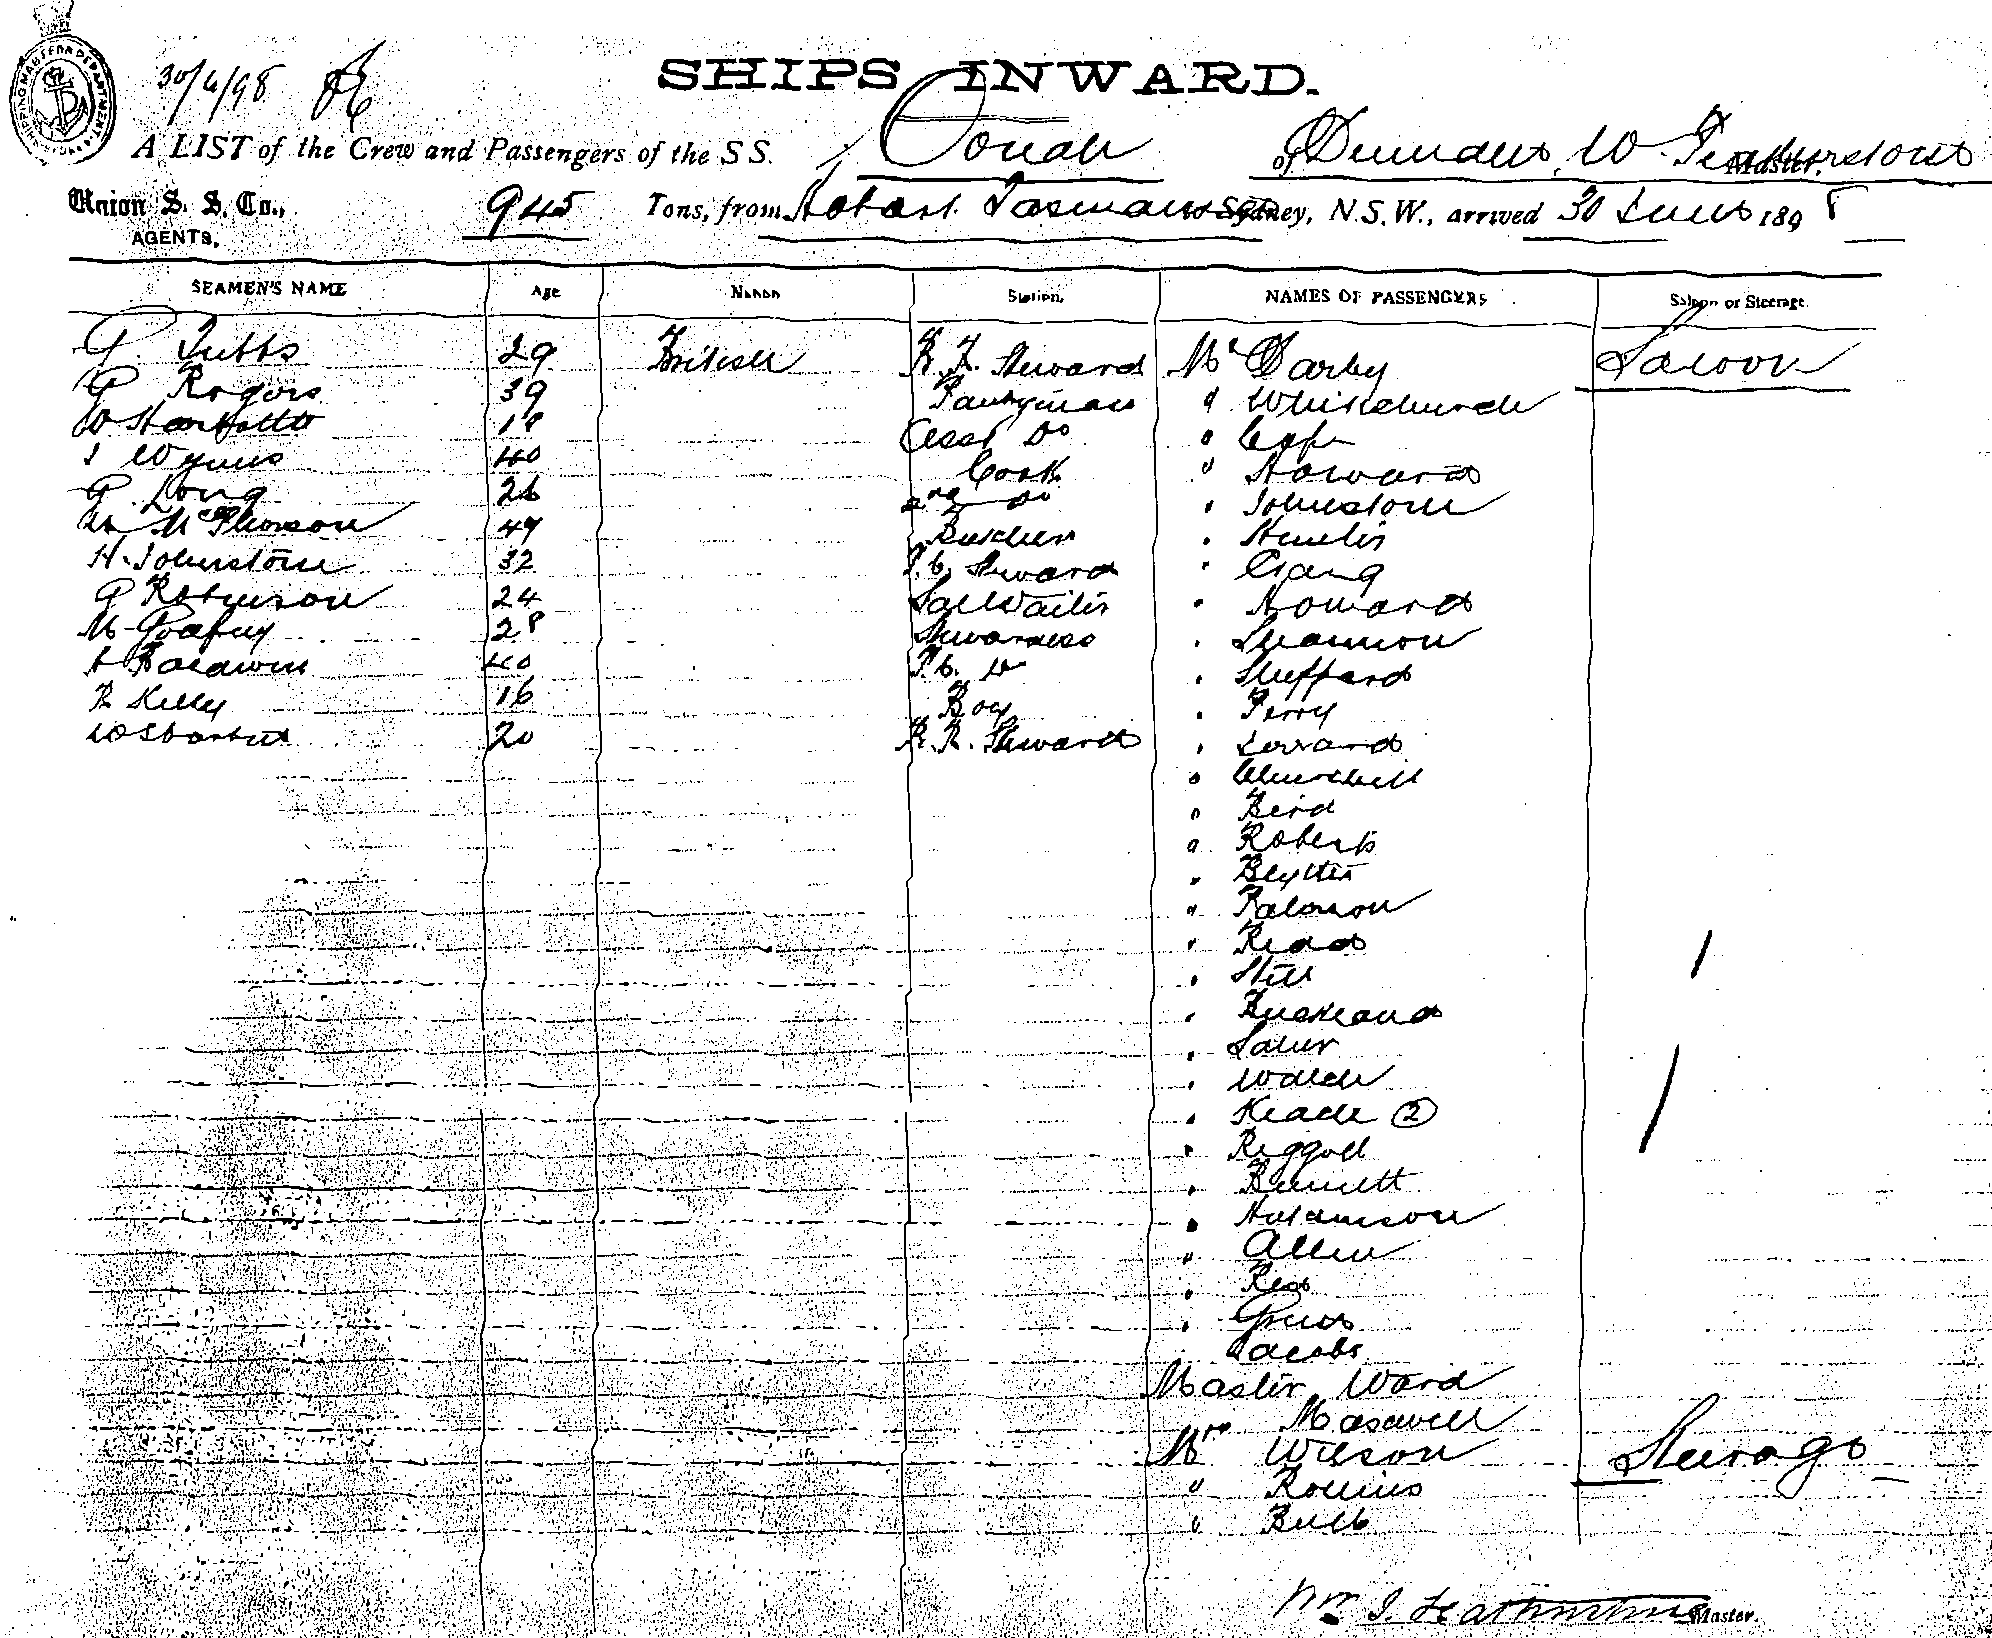 30/6/98
SHIPS INWARD.
A LIST of the Crew and Passengers of the S S. Oonah of Dunedin, W. Featherstone Master,
Union S. S. Co., 945 Tons, from Hobart Tasmania to Sydney, N.S.W., arrived 30 June 1898
AGENTS,
SEAMEN'S NAME Age Nation Station. NAMES OF PASSENGERS Saloon or Steerage.
G Tubbs 29 British Steward Mr Darby Saloon
G Rogers 39 Pantryman " Whitchurch
W 18 Asst Do "
J Wynne 40 Cook " Howard
G Long 26 2nd Do " Johnstone
McPherson 49 Butcher "
H. Johnstone 32 F.C. Steward " Craig
G Robinson 24 Sal Waiter " Howard
M Godfrey 28 Stewardess " Shannon
A Baldwin 40 F.C. Do " Sheppard
R Kelly 16 Boy " Perry
W 20 Steward "
" Churchill
" Bird
" Roberts
" Blythe
"
" Read
" Still
" Buckland
"
" Walch
" Keach (2)
" Riggall
" Burnett
" Adamson
" Allen
"
"
Jacobs
Master Ward
Maxwell
Mrs Wilson Steerage
" Rollins
" Bull
Wm J. Featherstone Master.